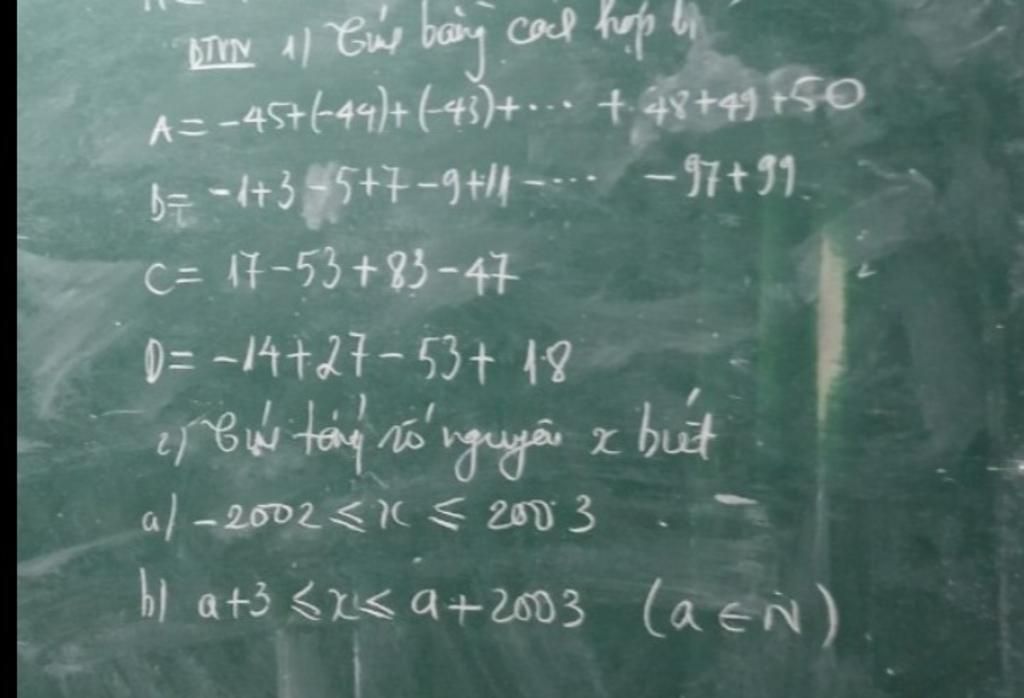 BTVN 1) Tính bằng cách hợp lí
A = -45+(-44)+(-43)+... + 48+49+50
B = -1+3-5+7-9+11-... -97+99
C = 17-53+83-47
D = -14+27-53+18
2) Tính tổng số nguyên x biết
a) -2002 ≤ x ≤ 2003
b) a+3 ≤ x ≤ a+2003 (a ∈ N)